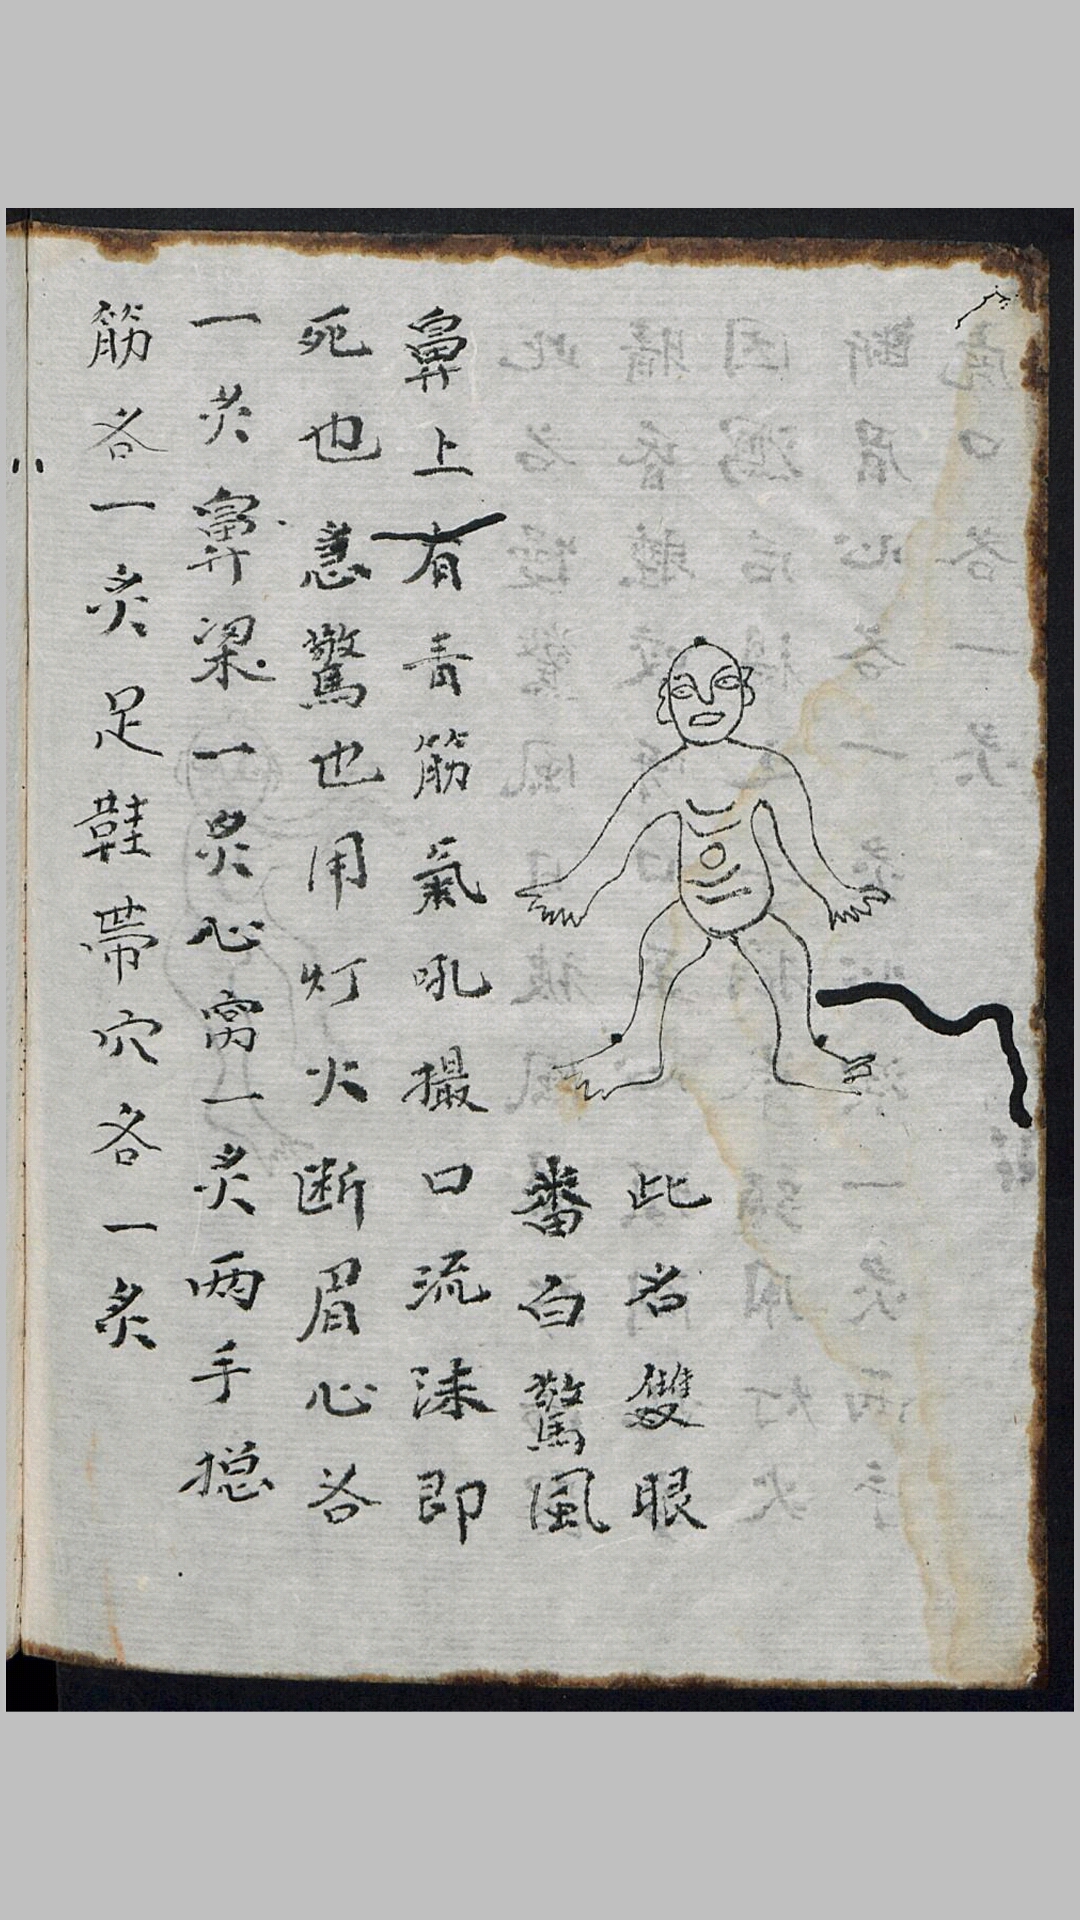 此名雙眼
番白驚風
鼻上有青筋氣吼撮口流沫即
死也急驚也用灯火断眉心各
一炙鼻梁一炙心窩一炙两手揔
筋各一炙足鞋帶穴各一炙